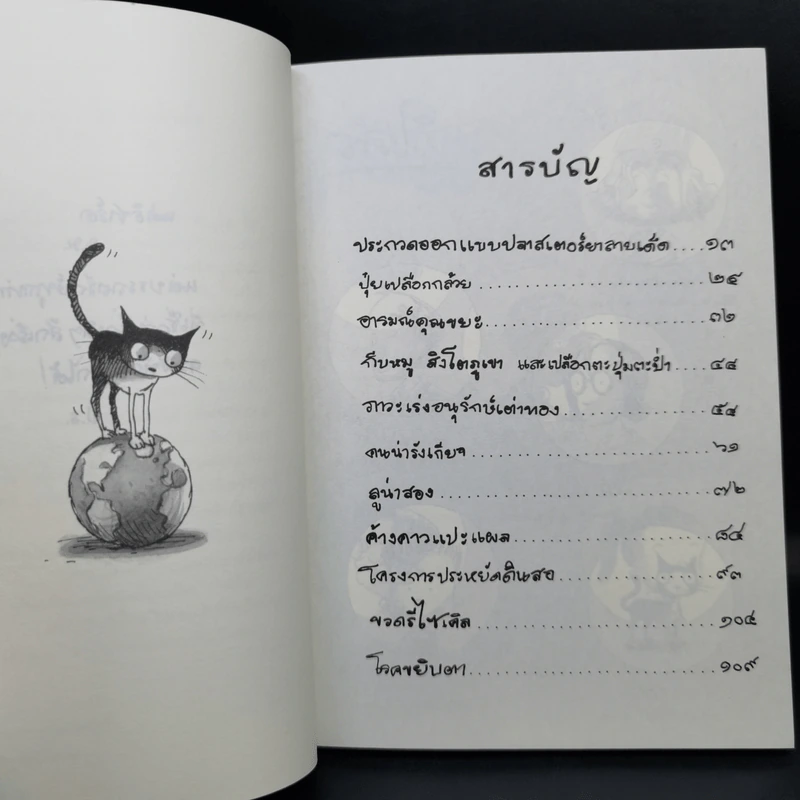 สารบัญ
ประกวดออกแบบปลาสเตอร์ยาลายเด็ด....๑๓
ปุ๋ยเปลือกกล้วย..........................๒๕
อารมณ์คุณขยะ..........................๓๒
กีบหมู สิงโตภูเขา และเปลือกตะปุ่มตะป่ำ....๔๔
ภาวะเร่งอนุรักษ์เต่าทอง................๕๔
คนน่ารังเกียจ..........................๖๑
ลูน่าสอง..........................๗๒
ค้างคาวแปะแผล..........................๘๔
โครงการประหยัดดินสอ................๙๓
ขวดรีไซเคิล..........................๑๐๔
โรคขยิบตา..........................๑๐๙